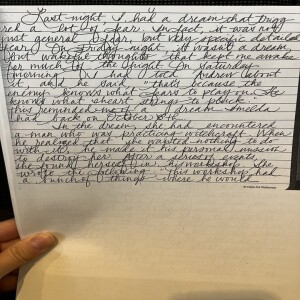 Last night, I had a dream that trigg-
red a lot of fear. In fact, it was not
just general fear, but very specific detailed
fear. On Friday night, it wasn't a dream,
but wakeful thoughts that kept me awake
for much of the night. On Saturday
morning, I had told Andrew about
it and he said, "that's because the
enemy knows what fears to play on. He
knows what heart strings to pluck."
That reminded me of a dream
had back on October
In the dream, she had encountered
a man who was practicing witchcraft. When
he realized that she wanted nothing to do
with it, he made it his personal mission
to destroy her. After a series of events
she found herself in his workshop. She
wrote the following: "This workshop had
a bunch of things where he would